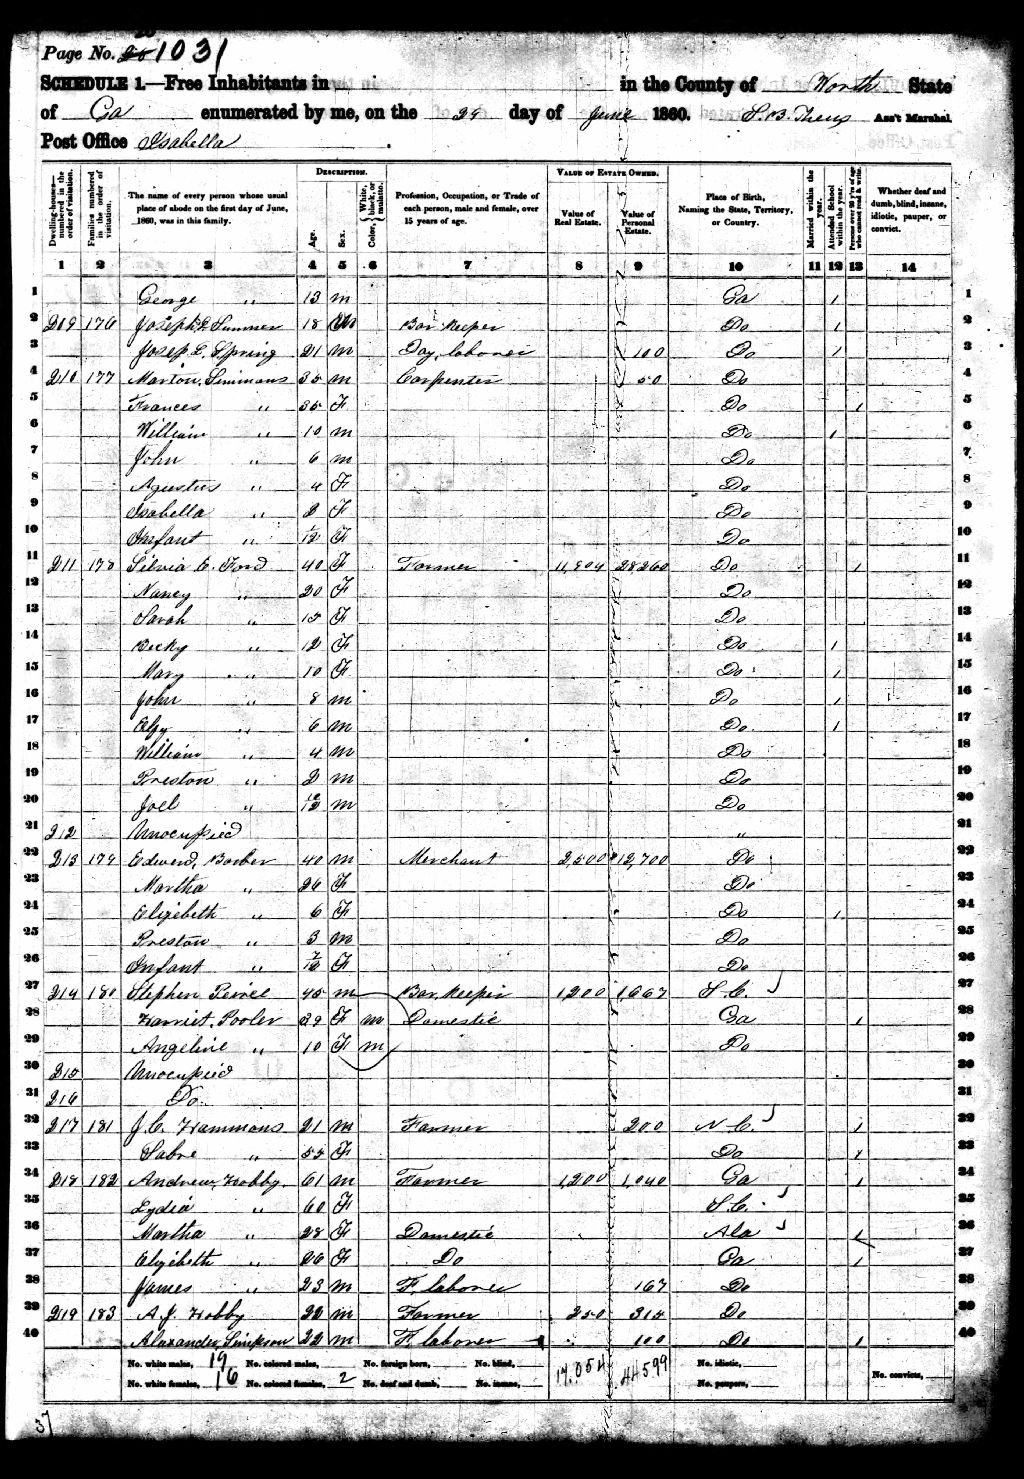 Page No. 20 1031
SCHEDULE 1.—Free Inhabitants in in the County of Worth State
of Ga enumerated by me, on the 29 day of June 1860. Ass't Marshal.
Post Office Isabella
Dwelling-houses—numbered in the order of visitation. Families numbered in the order of visitation. The name of every person whose usual place of abode on the first day of June, 1860, was in this family. DESCRIPTION. Age. Sex. Color, White, black, or mulatto. Profession, Occupation, or Trade of each person, male and female, over 15 years of age. VALUE OF ESTATE OWNED. Value of Real Estate. Value of Personal Estate. Place of Birth, Naming the State, Territory, or Country. Married within the year. Attended School within the year. Persons over 20 y'rs of age who cannot read & write. Whether deaf and dumb, blind, insane, idiotic, pauper, or convict.
1 2 3 4 5 6 7 8 9 10 11 12 13 14
1 George " 13 m Ga 1 1
2 209 176 Joseph Summer 18 m Bar Keeper Do 1 2
3 Josep L. Spring 21 m Day laborer 100 Do 1 3
4 210 177 Marion Simmons 35 m Carpenter 50 Do 4
5 Frances " 35 F Do 1 5
6 William " 10 m Do 1 6
7 John " 6 m Do 7
8 Agustus " 4 F Do 8
9 Isabella " 2 F Do 9
10 Infant " 1/12 F Do 10
11 211 178 Silvia C. Ford 40 F Farmer 11,804 28260 Do 1 11
12 Nancy " 20 F Do 12
13 Sarah " 15 F Do 13
14 Becky " 12 F Do 1 14
15 Mary " 10 F Do 1 15
16 John " 8 m Do 1 16
17 Elzy " 6 m Do 1 17
18 William " 4 m Do 18
19 Preston " 2 m Do 19
20 Joel " /12 m Do 20
21 212 Unocupied " 21
22 213 179 Edward, Barber 40 m Merchant 2,500 12,700 Do 22
23 Martha " 26 F Do 23
24 Elizebeth " 6 F Do 1 24
25 Preston " 3 m Do 25
26 Infant " 7/12 F Do 26
27 214 180 Stephen 45 m Bar Keeper 1,200 1,667 S.C. 27
28 Harriet, Pooler 39 F m Domestic Ga 1 28
29 Angeline " 10 F m Do 29
30 215 Unocupied 30
31 216 Do 31
32 217 181 J. C. Hammons 21 m Farmer 200 N C. 1 32
33 Sabre " 55 F Do 1 33
34 218 182 Andrew, Hobby. 61 m Farmer 1,200 1,040 Ga 1 34
35 Lydia " 60 F S.C. 35
36 Martha " 28 F Domestic Ala 1 36
37 Elizebeth " 26 F Do Ga 1 37
38 James " 23 m F. laborer 167 Do 38
39 219 183 A. J. Hobby 22 m Farmer 250 315 Do 39
40 Alexander, Simpson 22 m F. laborer 100 Do 1 40
No. white males, 19 No. colored males, No. foreign born, No. blind, 17,054 44599 No. idiotic, No. convicts,
No. white females, 16 No. colored females, 2 No. deaf and dumb, No. insane, No. paupers,